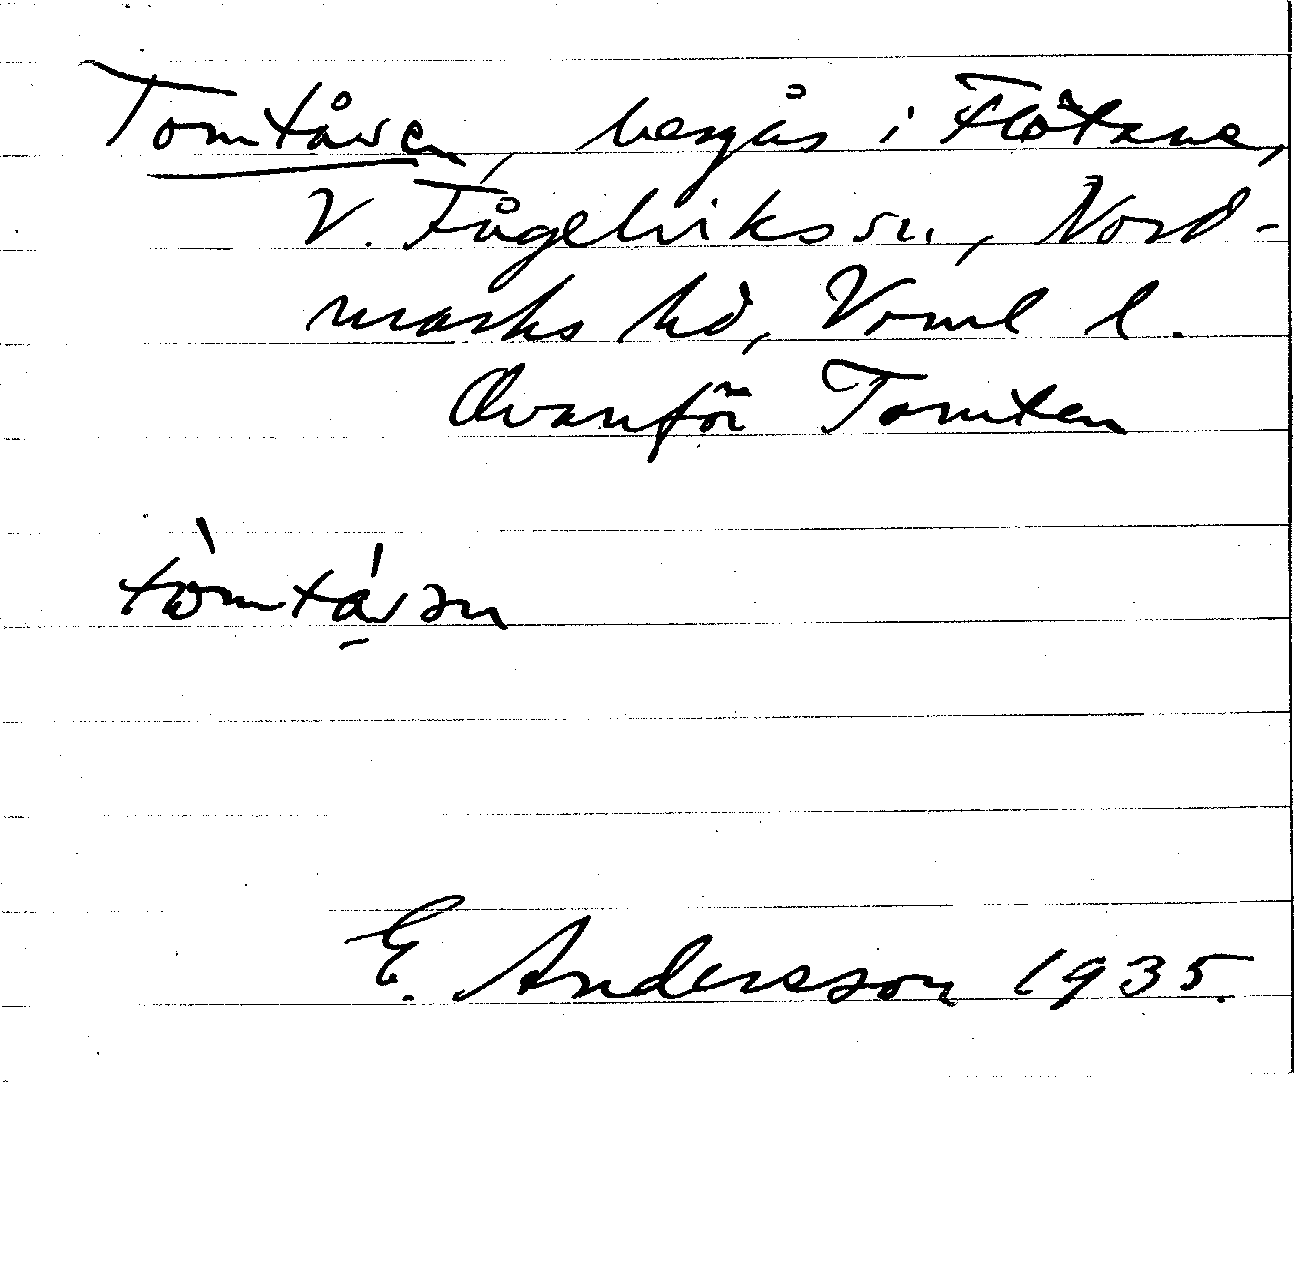 Tomtåsen, bergås i Flötane,
V. Fågelviks sn, Nord-
marks hd, Vrml l.
Ovanför Tomten
E. Andersson 1935.